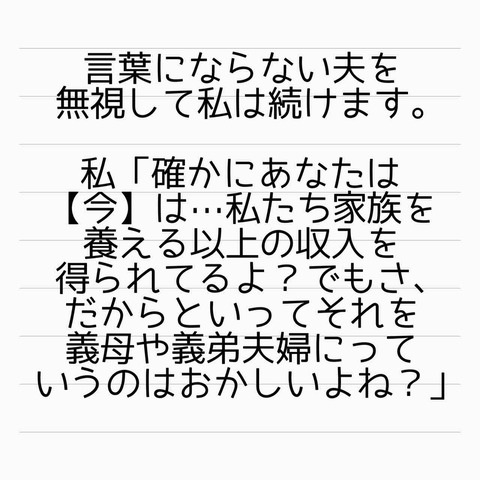 言葉にならない夫を
無視して私は続けます。
私「確かにあなたは
【今】は…私たち家族を
養える以上の収入を
得られてるよ？でもさ、
だからといってそれを
義母や義弟夫婦にって
いうのはおかしいよね？」